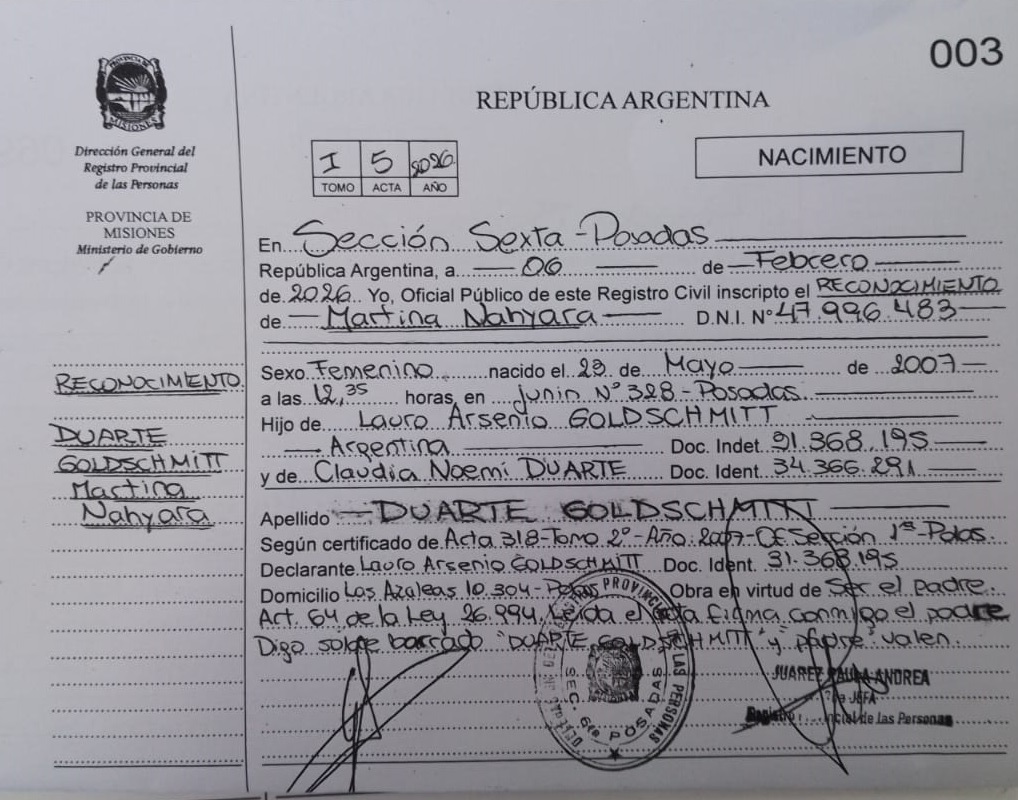 003
PROVINCIA DE MISIONES
REPÚBLICA ARGENTINA
Dirección General del
Registro Provincial
de las Personas
PROVINCIA DE
MISIONES
Ministerio de Gobierno
I 5 2026
TOMO ACTA AÑO
NACIMIENTO
En Sección Sexta - Posadas
República Argentina, a 06 de Febrero
de 2026 Yo, Oficial Público de este Registro Civil inscripto el RECONOCIMIENTO
de Martina Nahyara D.N.I. N° 47.996.483
Sexo Femenino nacido el 29 de Mayo de 2007
a las 12,35 horas, en Junin N° 328 - Posadas
Hijo de Lauro Arsenio GOLDSCHMITT
Argentina Doc. Indet. 31.368.195
y de Claudia Noemi DUARTE Doc. Ident. 34.366.291
Apellido DUARTE GOLDSCHMITT
Según certificado de Acta 318 - Tomo 2° - Año: 2007 - Sección 1ª - Pdas.
Declarante Lauro Arsenio GOLDSCHMITT Doc. Ident. 31.368.195
Domicilio Las Azaleas 10.304 - Pdas Obra en virtud de Ser el padre
Art. 64 de la Ley 26.994. Leida el acta firma conmigo el padre
Digo sobre borrado "DUARTE GOLDSCHMITT" y "padre" valen.
RECONOCIMIENTO
DUARTE
GOLDSCHMITT
Martina
Nahyara
SEC. 6ta. POSADAS
JUAREZ PAULA ANDREA
JEFA
de las Personas